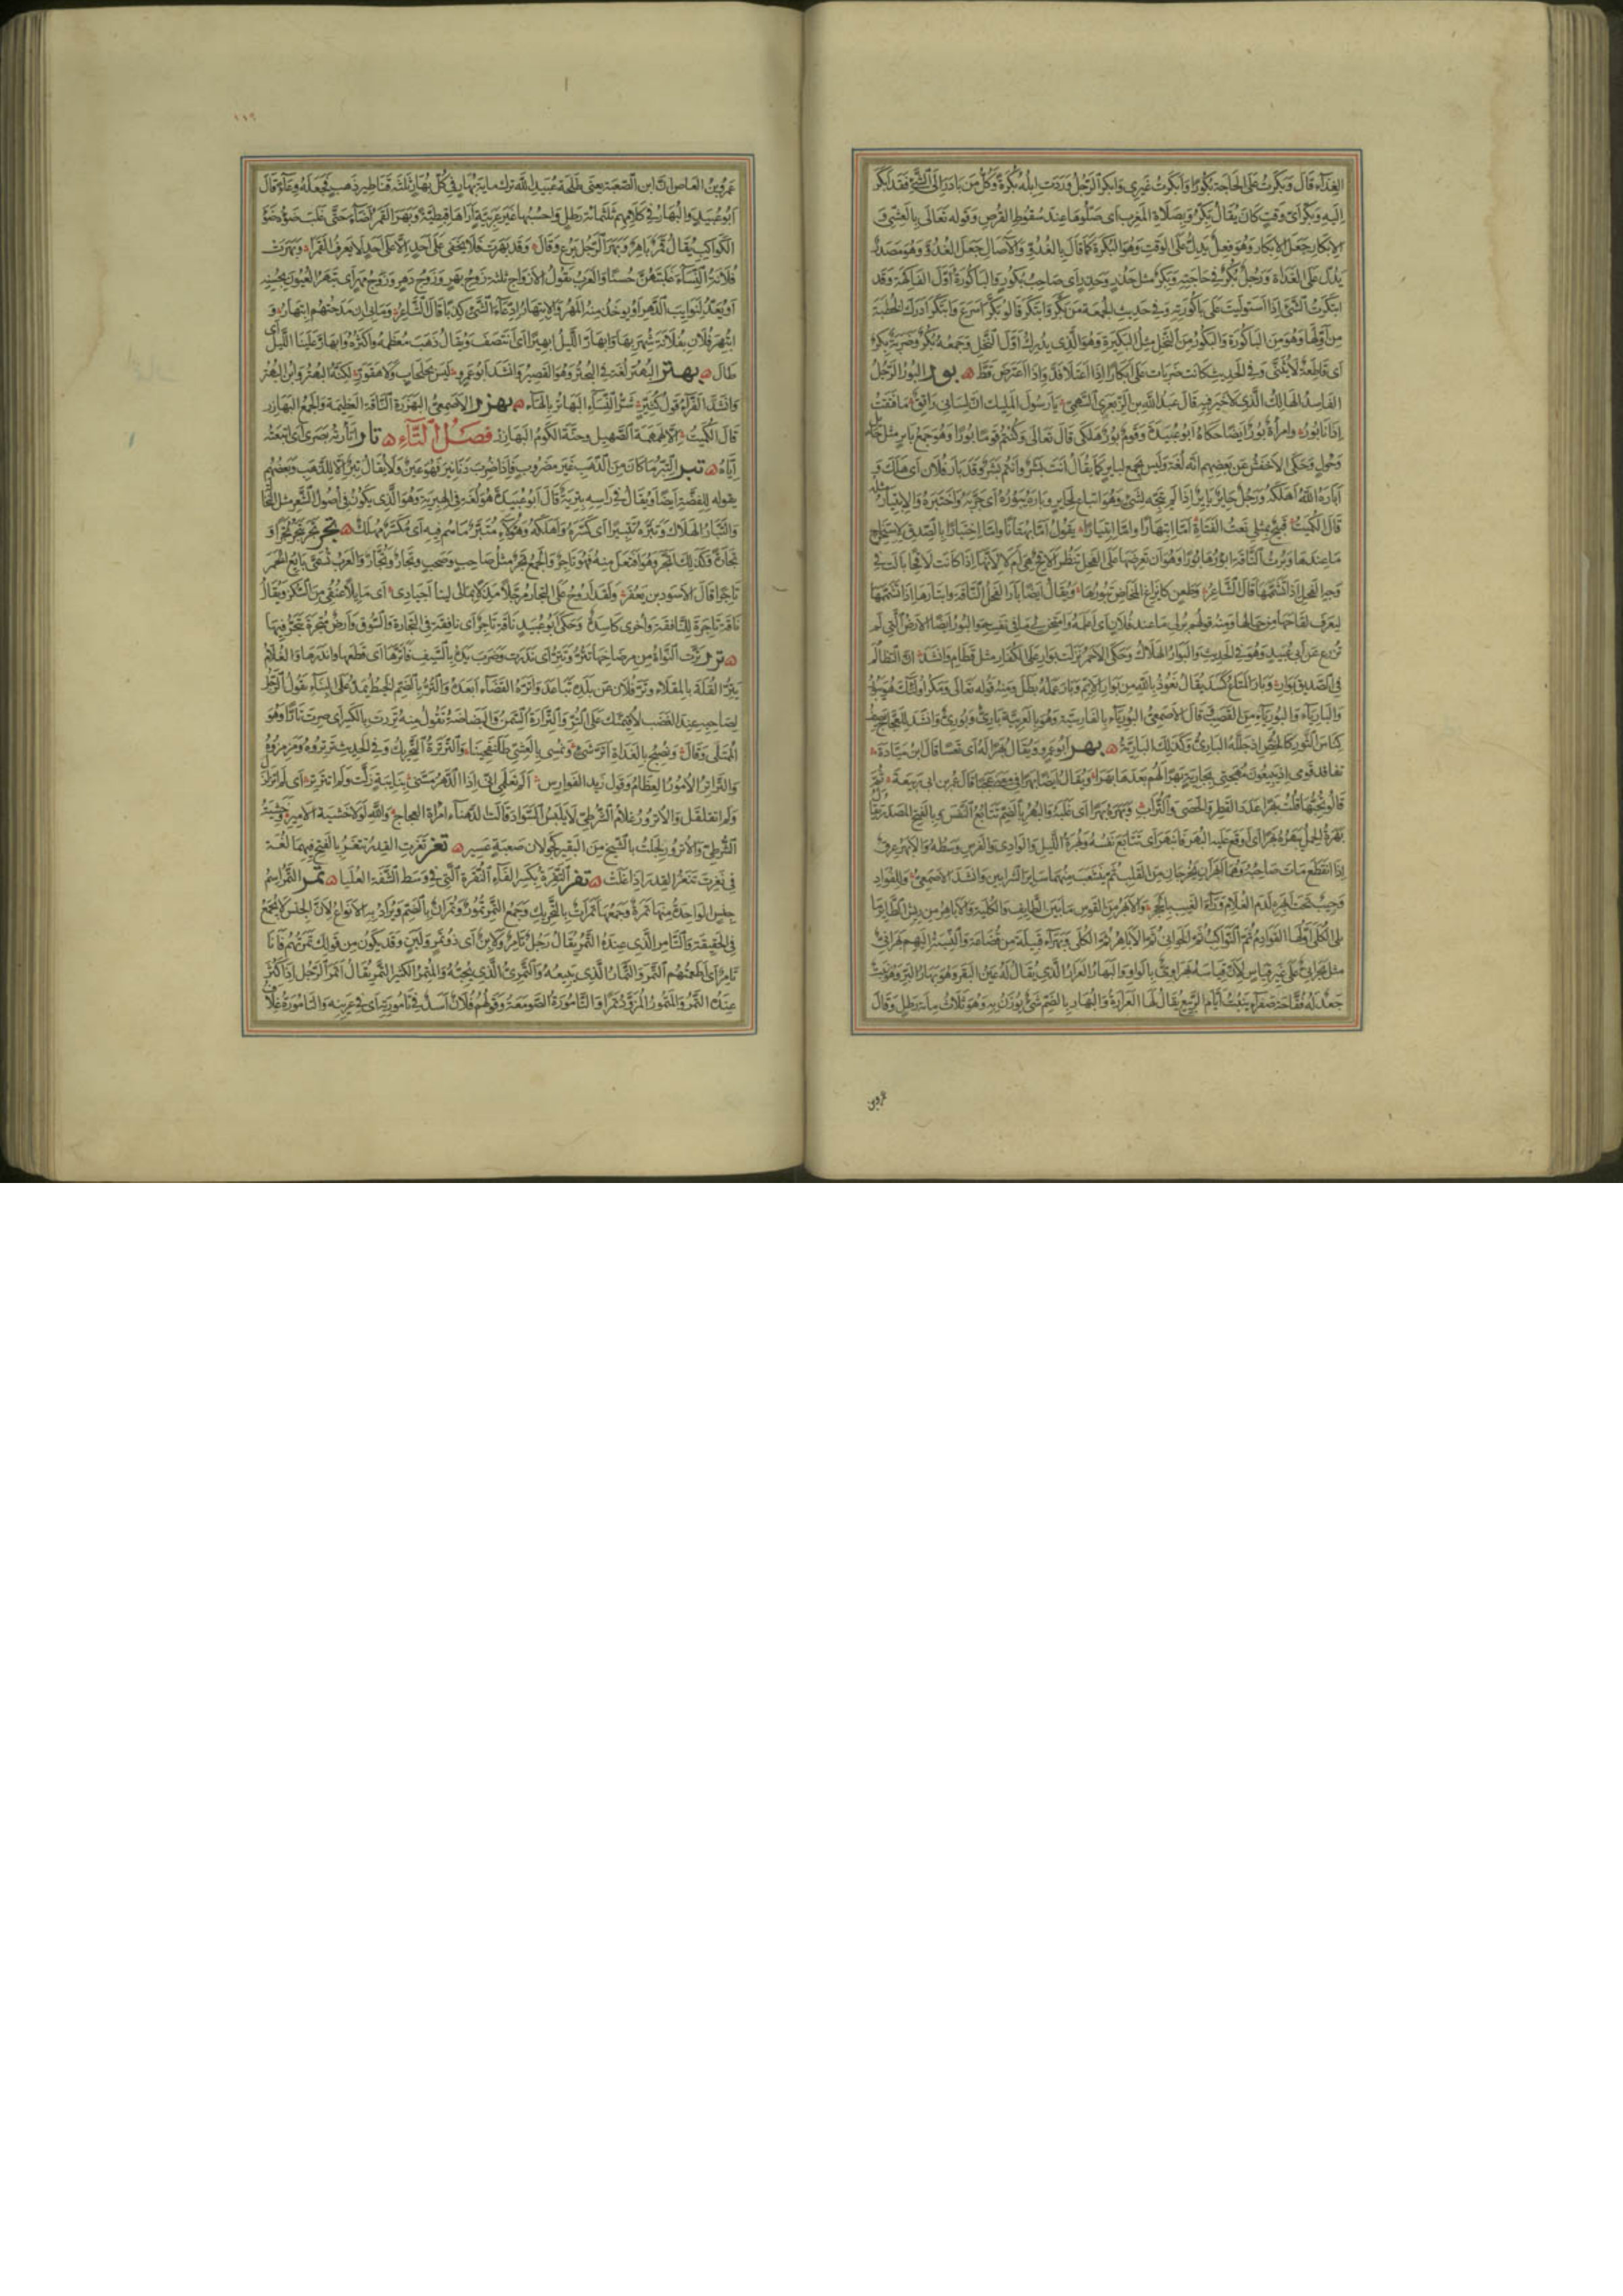 الغداء قال وبكرت على الحاجة بكورا وابكرت غيرى وابكر الرجل وردت ابله بكرة وكل من بادر الى الشئ فقد ابكر
اليه وبكر اى وقت كان يقال بكروا بصلاة المغرب اى صلوها عند سقوط القرص وقوله تعالى بالعشى و
الابكار جعل الابكار وهو فعل يدل على الوقت وهو البكرة كما قال بالغدو والآصال جعل الغدو وهو مصدر
يدل على الغداة ورجل بكر فى حاجته وبكر مثل حذر وحذر اى صاحب بكور والباكورة اول الفاكهة وقد
ابتكرت الشئ اذا استوليت على باكورته وفى حديث الجمعة من بكر وابتكر قالوا بكر اسرع وابتكر ادرك الخطبة
من اولها وهو من الباكورة والبكور من النخل مثل البكيرة وهو الذى يدرك اول النخل وجمعه بكر وضربة بكر
اى قاطعة لا تثنى وفى الحديث كانت ضربات على ابكارا اذا اعتلا قد واذا اعترض قط بور البور الرجل
الفاسد الهالك الذى لا خير فيه قال عبد الله بن الزبعرى السهمى يا رسول المليك ان لسانى راتق ما فتقت
اذ انا بور وامرأة بور ايضا حكاه ابو عبيدة وقوم بور هلكى قال تعالى وكنتم قوما بورا وهو جمع باير مثل حايل
وحول وحكى الاخفش عن بعضهم انه لغة وليس بجمع لباير كما يقال انت بشر وانتم بشر وقد بار فلان اى هلك و
اباره الله اهلكه ورجل حاير باير اذا لم يتجه لشئ وهو اتباع لحاير وباره يبوره اى جربه واختبره والابتيار مثله
قال الكميت قبيح بمثلى نعت الفتاة اما ابتهارا واما ابتيارا يقول اما بهتانا واما اختبارا بالصدق لاستخراج
ما عندها وبرت الناقة ابورها بورا وهو ان تعرضها على الفحل تنظر الاقح هى ام لا لانها اذا كانت لاقحا بالت فى
وجه الفحل اذا تشممها قال الشاعر وطعن كايزاغ المخاض تبورها ويقال ايضا بار الفحل الناقة وابتارها اذا تشممها
ليعرف لقاحها من حيالها ومنه قولهم بر لى ما عند فلان اى اعلمه وامتحن لى ما فى نفسه والبور ايضا الارض التى لم
تزرع عن ابى عبيد وهو فى الحديث والبوار الهلاك وحكى الاحمر نزلت بوار على الكفار مثل قطام وانشد ان التظالم
فى الصديق بوار وبار المتاع كسد يقال نعوذ بالله من بوار الايم وبار عمله بطل ومنه قوله تعالى ومكر اولئك هو يبور
والبارياء والبورياء من القصب قال الاصمعى البورياء بالفارسية وهو بالعربية بارى وبورى وانشد للعجاج يصف
كناس الثور كالخص اذ جلله البارى وكذلك البارية بهر ابو عمرو يقال بهرا له اى تعسا قال ابن ميادة
تفاقد قومى اذ يبيعون مهجتى بجارية بهرا لهم بعدها بهرا ويقال ايضا بهرا فى معنى عجبا قال عمر بن ابى ربيعة ثم
قالوا تحبها قلت بهرا عدد القطر والحصى والتراب وبهره بهرا اى غلبه والبهر بالضم تتابع النفس وبالفتح المصدر يقال
بهره الحمل يبهره بهرا اى اوقع عليه البهر فانبهر اى تتابع نفسه وبهرة الليل والوادى والفرس وسطه والابهر عرق
اذا انقطع مات صاحبه وهما ابهران يخرجان من القلب ثم يتشعب منهما ساير الشرايين وانشد الاصمعى وللفواد
وجيب تحت ابهره لدم الغلام وراء الغيب بالحجر والابهر من القوس ما بين الطايف والكلية والاباهر من ريش الطاير ما
يلى الكلى اولها القوادم ثم المناكب ثم الخوافى ثم الاباهر ثم الكلى وبهراء قبيلة من قضاعة والنسبة اليهم بهرانى
مثل بحرانى على غير قياس لان قياسه بهراوى بالواو والبهار العرار الذى يقال له عين البقر وهو بهار البر وهو نبت
جعد له فقاحة صفراء ينبت ايام الربيع يقال لها العرارة والبهار بالضم شئ يوزن به وهو ثلاث مائة رطل وقال
عمرو بن
١١٦
عمرو بن العاص ان ابن الصعبة يعنى طلحة بن عبيد الله ترك ماية بهار فى كل بهار ثلثة قناطير ذهب فجعله وعاء قال
ابو عبيد والبهار فى كلامهم ثلثمائة رطل واحسبها غير عربية اراها قبطية وبهر القمر اضاء حتى غلب ضوؤه ضوء
الكواكب يقال قمر باهر وبهر الرجل برع وقال وقد بهرت فلا تخفى على احد الا على احد لا يعرف القمرا وبهرت
فلانة النساء غلبتهن حسنا والعرب تقول الازواج ثلثة زوج بهر وزوج دهر وزوج مهر اى يبهر العيون بحسنه
او يعد لنوايب الدهر او يوخذ منه المهر والابتهار ادعاء الشئ كذبا قال الشاعر وما بى ان مدحتهم ابتهار و
ابتهر فلان بفلانة شهر بها وابهار الليل ابهيرارا اى انتصف ويقال ذهب معظمه واكثره وابهار علينا الليل اى
طال بهتر البهتر لغة فى البحتر وهو القصير وانشد ابو عمرو ليس بجلحاب ولا هقور لكنه البهتر وابن البهتر
وانشد الفراء قول كثير شر النساء البهاتر بالهاء بهزر الاصمعى البهزرة الناقة العظيمة والجمع البهازر
قال الكميت الا لهمهمة الصهيل وحنة الكوم البهازر فصل التاء تار اتأرته بصرى اى اتبعته
اياه تبر التبر ما كان من الذهب غير مضروب فاذا ضرب دنانير فهو عين ولا يقال تبر الا للذهب وبعضهم
يقوله للفضة ايضا ويقال فى راسه تبرية قال ابو عبيدة هو لغة فى الهبرية وهو الذى يكون فى اصول الشعر مثل النخالة
والتبار الهلاك وتبره تتبيرا اى كسره واهلكه وهؤلاء متبر ما هم فيه اى مكسر مهلك تجر تجر يتجر تجرا و
تجارة وكذلك اتجر وهو افتعل منه فهو تاجر والجمع تجر مثل صاحب وصحب وتجار وتجار والعرب تسمى بايع الخمر
تاجرا قال الاسود بن يعفر ولقد اروح على التجار مرجلا مذلا بمالى لينا اجيادى اى مايلا عنقى من السكر ويقال
ناقة تاجرة للنافقة واخرى كاسدة وحكى ابو عبيد ناقة تاجر اى نافقة فى التجارة والسوق وارض متجرة يتجر فيها
ترر ترت النواة من مرضاحها تتر وتتر اى ندرت وضرب يده بالسيف فاترها اى قطعها واندرها والغلام
يتر القلة بالمقلاء وتر فلان عن بلده تباعد واتره القضاء ابعده والتر بالضم الخيط يمد على البناء يقول الرجل
لصاحبه عند الغضب لاقيمنك على التر والترارة السمن والبضاضة تقول منه تررت بالكسر اى صرت تارا وهو
الممتلى وقال ونصبح بالغداة اتر شئ ونمسى بالعشى طلنفحينا والترترة التحريك وفى الحديث ترتروه ومزمزوه
والتراتر الامور العظام وقول زيد الفوارس الم تعلمى انى اذا الدهر مسنى بنايبة زلت ولم اتترتر اى لم اتزلزل
ولم اتقلقل والاترور غلام الشرطى لا يلبس السواد قالت الدهناء امراة العجاج والله لولا خشية الامير وخشية
الشرطى والاترور لجلت بالشيخ من البقير كجولان صعبة عسير تغر تغرت القدر تتغر بالفتح فيهما لغة
فى نغرت تنغر القدر اذا غلت تفر التفرة بكسر الفاء النقرة التى فى وسط الشفة العليا تمر التمر اسم
جنس الواحدة منها تمرة وجمعها تمرات بالتحريك وجمع التمر تمور وتمران بالضم ويراد به الانواع لان الجنس لا يجمع
فى الحقيقة والتامر الذى عنده التمر يقال رجل تامر ولابن اى ذو تمر ولبن وقد يكون من قولك تمرتهم فانا
تامر اى اطعمتهم التمر والتمار الذى يبيعه والتمرى الذى يحبه والمتمر الكثير التمر يقال اتمر الرجل اذا كثر
عنده التمر والمتمور المزود تمرا والتامورة الصومعة وقولهم فلان اسد فى تامورته اى فى عرينه والتامورة غلاف